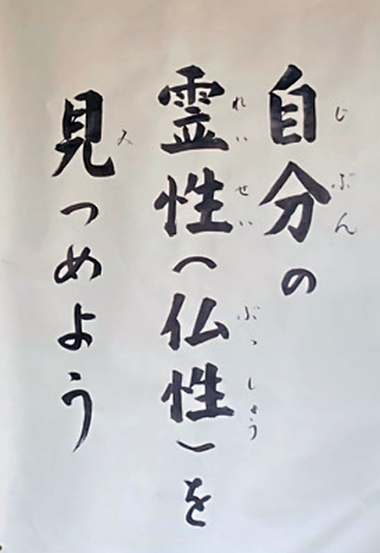 自分の
じぶん
霊性(仏性)を
れいせい ぶっしょう
見つめよう
み